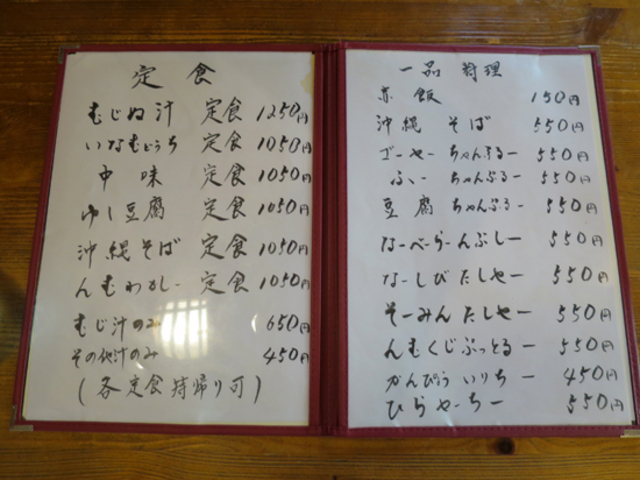 定食
むじぬ汁 定食 1250円
いなむどぅち 定食 1050円
中味 定食 1050円
ゆし豆腐 定食 1050円
沖縄そば 定食 1050円
んむわかしー 定食 1050円
むじ汁のみ 650円
その他汁のみ 450円
(各定食持帰り可)
一品料理
赤飯 150円
沖縄そば 550円
ごーやーちゃんぷるー 550円
ふーちゃんぷるー 550円
豆腐ちゃんぷるー 550円
なーべーらーんぶしー 550円
なーしびたしやー 550円
そーみんたしやー 550円
んむくじぷっとるー 550円
かんぴょういりちー 450円
ひらやーちー 550円